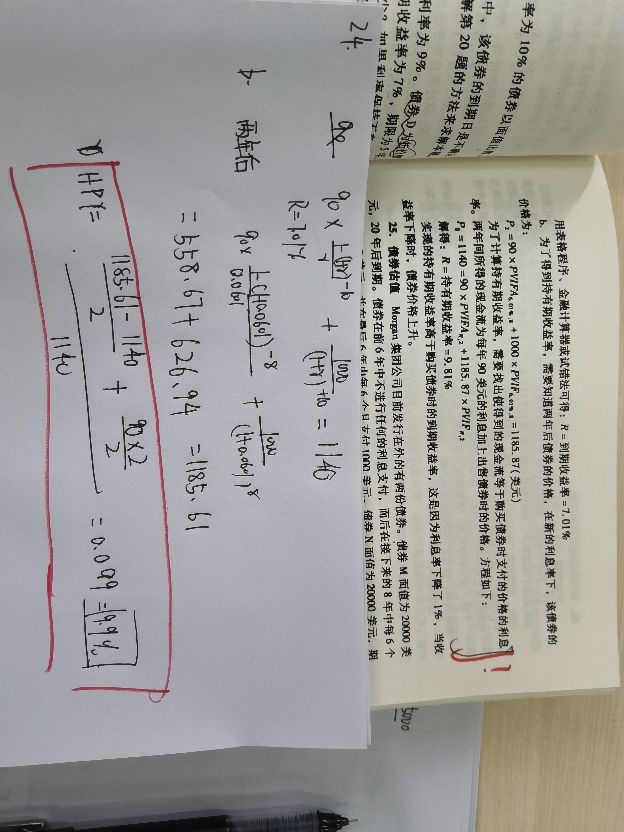 率为 10% 的债券以面值出
中，该债券的到期日是不
解第 20 题的方法来求解本
利率为 9%。债券 D 为
期收益率为 7%，期限为 5 年
用表格程序、金融计算器或试错法可得：R = 到期收益率 = 7.01%
b. 为了得到持有期收益率，需要知道两年后债券的价格，在新的利息率下，该债券的
价格为：
P₂ = 90 × PVIFA₆.₀₁%,₈ + 1000 × PVIF₆.₀₁%,₈ = 1185.87（美元）
为了计算持有期收益率，需要找出使得到的现金流等于购买债券时支付的价格的利息
率。两年间所得的现金流为每年 90 美元的利息加上出售债券时的价格。方程如下：
P₀ = 1140 = 90 × PVIFA_R,₂ + 1185.87 × PVIF_R,₂
解得：R = 持有期收益率 = 9.81%
实现的持有期收益率高于购买债券时的到期收益率，这是因为利息率下降了 1%，当收
益率下降时，债券价格上升。
25. 债券估值 Morgan 集团公司目前发行在外的有两份债券。债券 M 面值为 20000 美
元，20 年后到期。债券在前 6 年中不进行任何的利息支付，而后在接下来的 8 年中每 6 个
月支付 1000 美元。债券 N 面值为 20000 美元，期
!
24.
90 × (1-(1+r)^-10)/r + 1000/(1+r)^10 = 1140
R=7.01%
b. 两年后
90× (1-(1+0.0601)^-8)/0.0601 + 1000/(1+0.0601)^8
= 558.67 + 626.94 = 1185.61
HPY= ((1185.61-1140)/2 + 90×2/2)/1140 = 0.099 = 9.9%